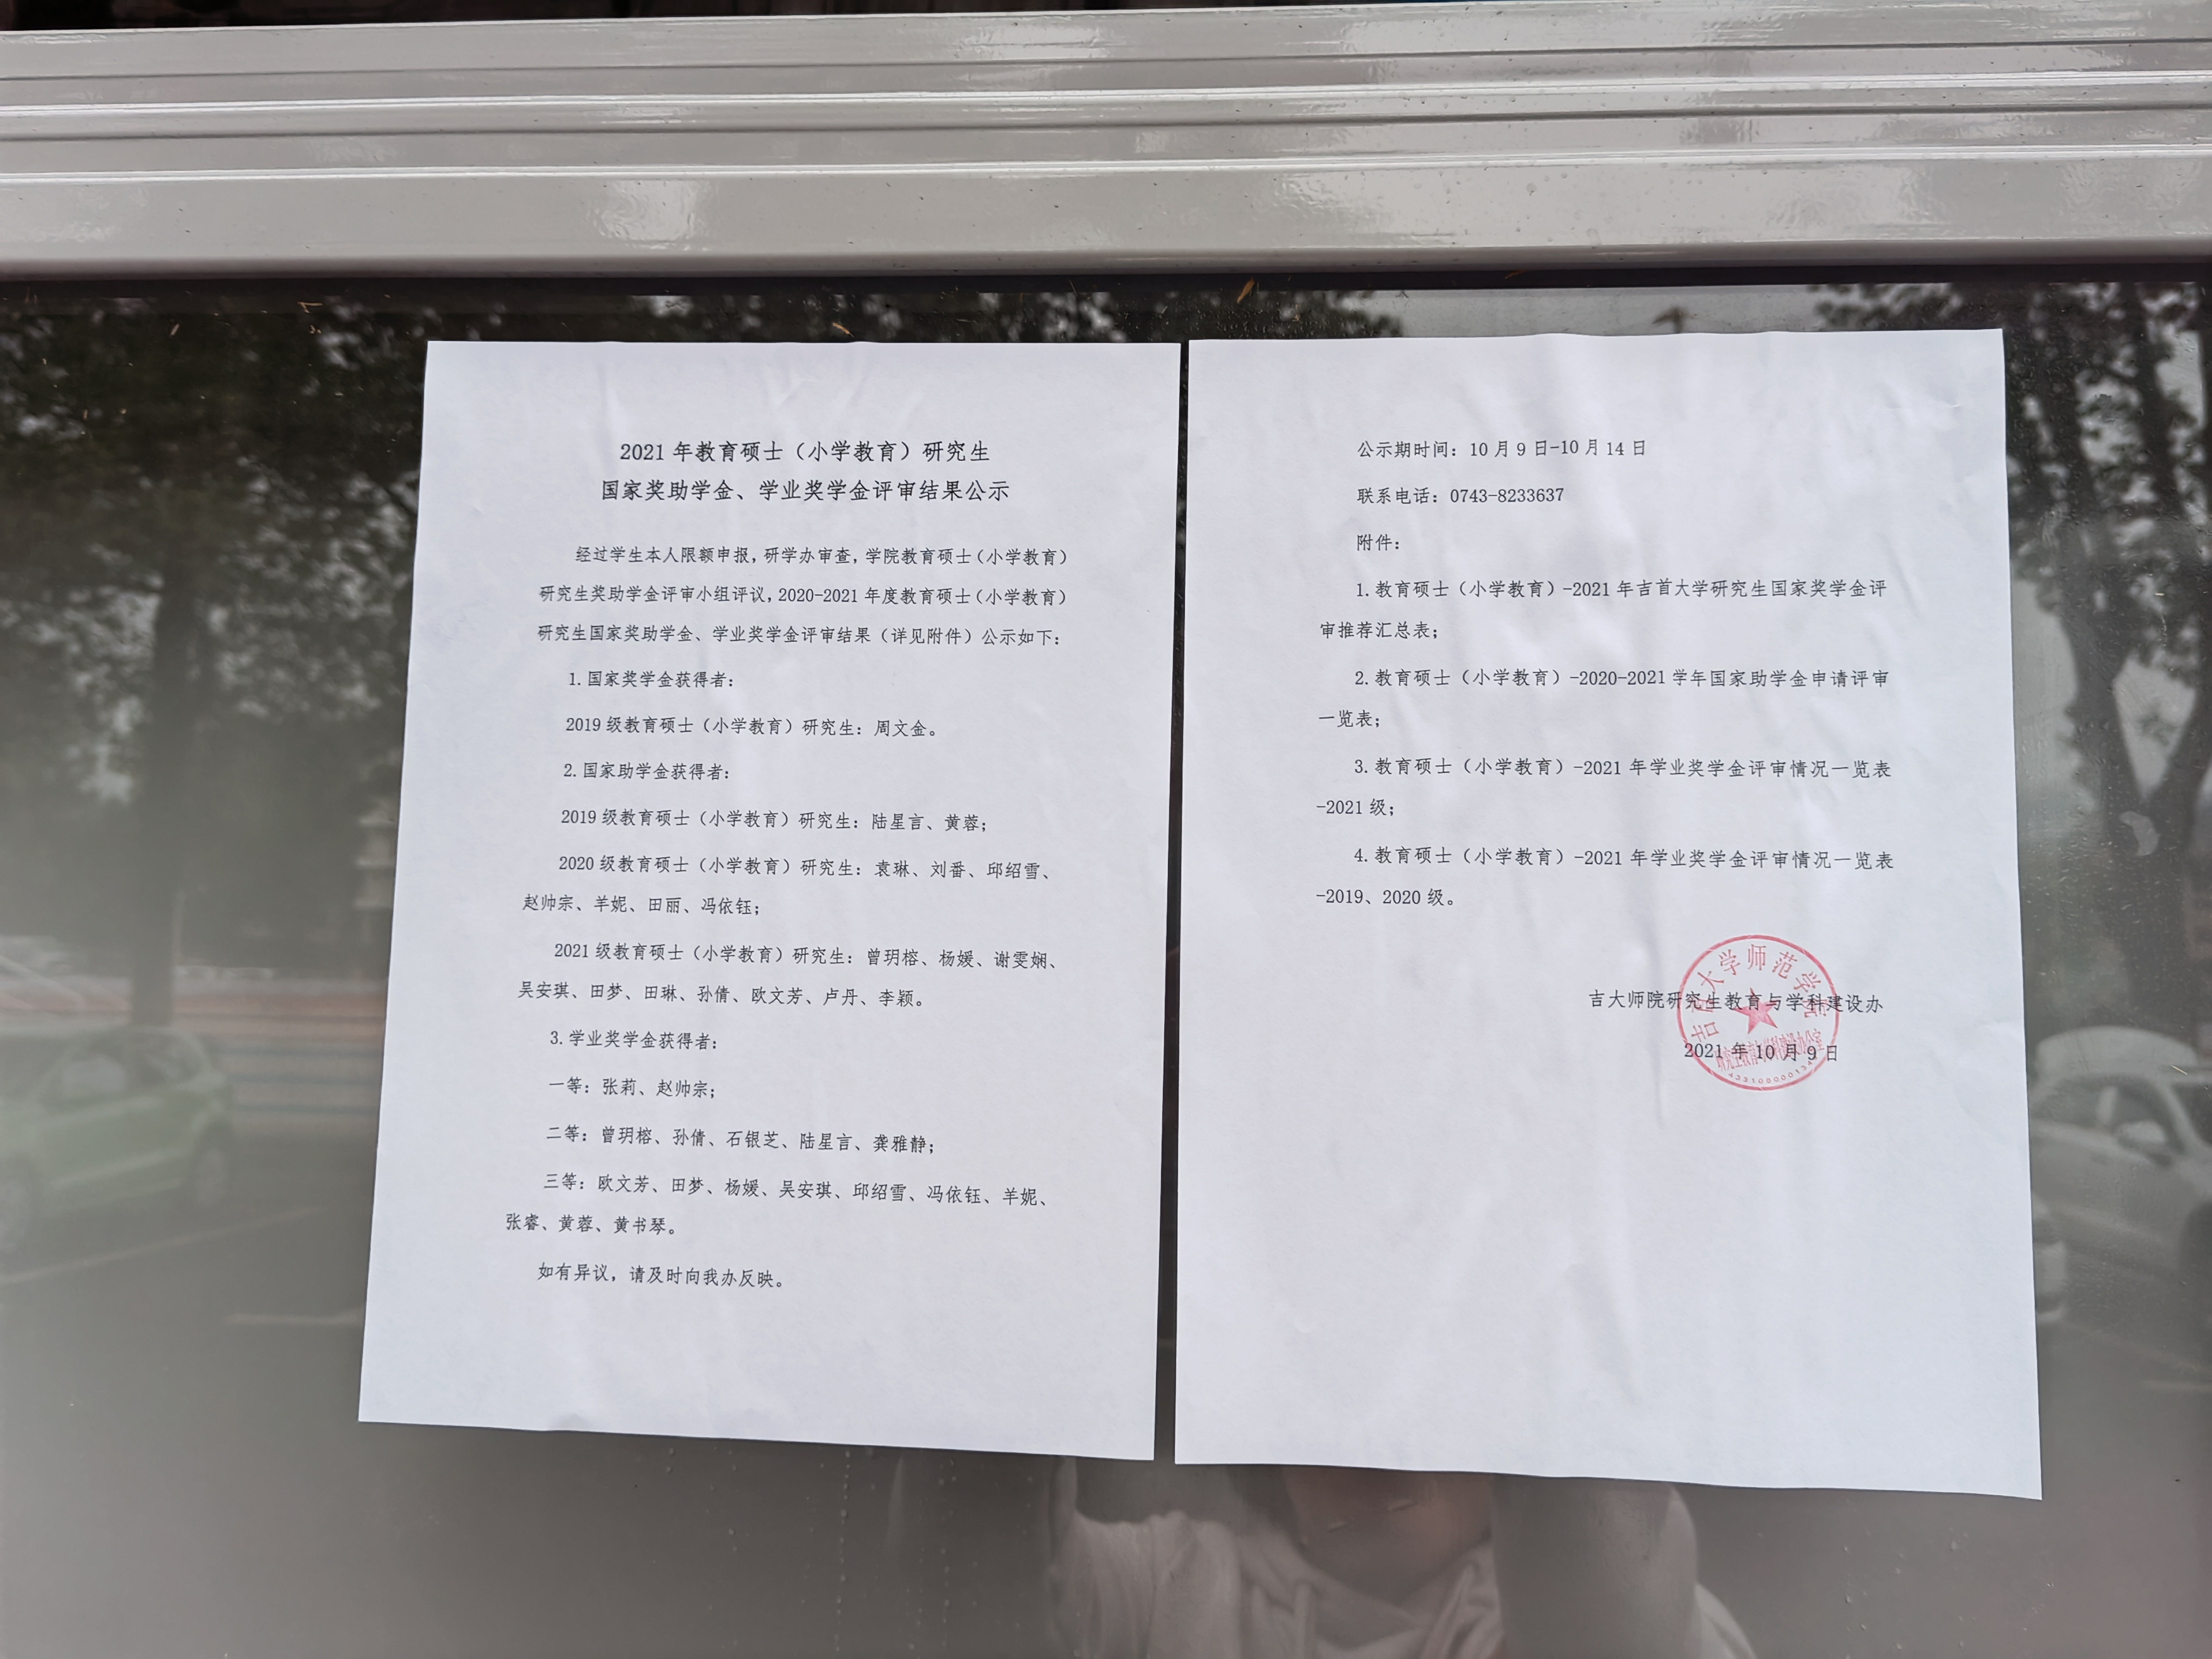 2021 年教育硕士（小学教育）研究生
国家奖助学金、学业奖学金评审结果公示
经过学生本人限额申报，研学办审查，学院教育硕士（小学教育）
研究生奖助学金评审小组评议，2020-2021 年度教育硕士（小学教育）
研究生国家奖助学金、学业奖学金评审结果（详见附件）公示如下：
1.国家奖学金获得者：
2019 级教育硕士（小学教育）研究生：周文金。
2.国家助学金获得者：
2019 级教育硕士（小学教育）研究生：陆星言、黄蓉；
2020 级教育硕士（小学教育）研究生：袁琳、刘番、邱绍雪、
赵帅宗、羊妮、田丽、冯依钰；
2021 级教育硕士（小学教育）研究生：曾玥榕、杨媛、谢雯娴、
吴安琪、田梦、田琳、孙倩、欧文芳、卢丹、李颖。
3.学业奖学金获得者：
一等：张莉、赵帅宗；
二等：曾玥榕、孙倩、石银芝、陆星言、龚雅静；
三等：欧文芳、田梦、杨媛、吴安琪、邱绍雪、冯依钰、羊妮、
张睿、黄蓉、黄书琴。
如有异议，请及时向我办反映。
公示期时间：10 月 9 日-10 月 14 日
联系电话：0743-8233637
附件：
1.教育硕士（小学教育）-2021 年吉首大学研究生国家奖学金评
审推荐汇总表；
2.教育硕士（小学教育）-2020-2021 学年国家助学金申请评审
一览表；
3.教育硕士（小学教育）-2021 年学业奖学金评审情况一览表
-2021 级；
4.教育硕士（小学教育）-2021 年学业奖学金评审情况一览表
-2019、2020 级。
吉首大学师范学院
吉大师院研究生教育与学科建设办
2021 年 10 月 9 日
研究生教育与学科建设办公室